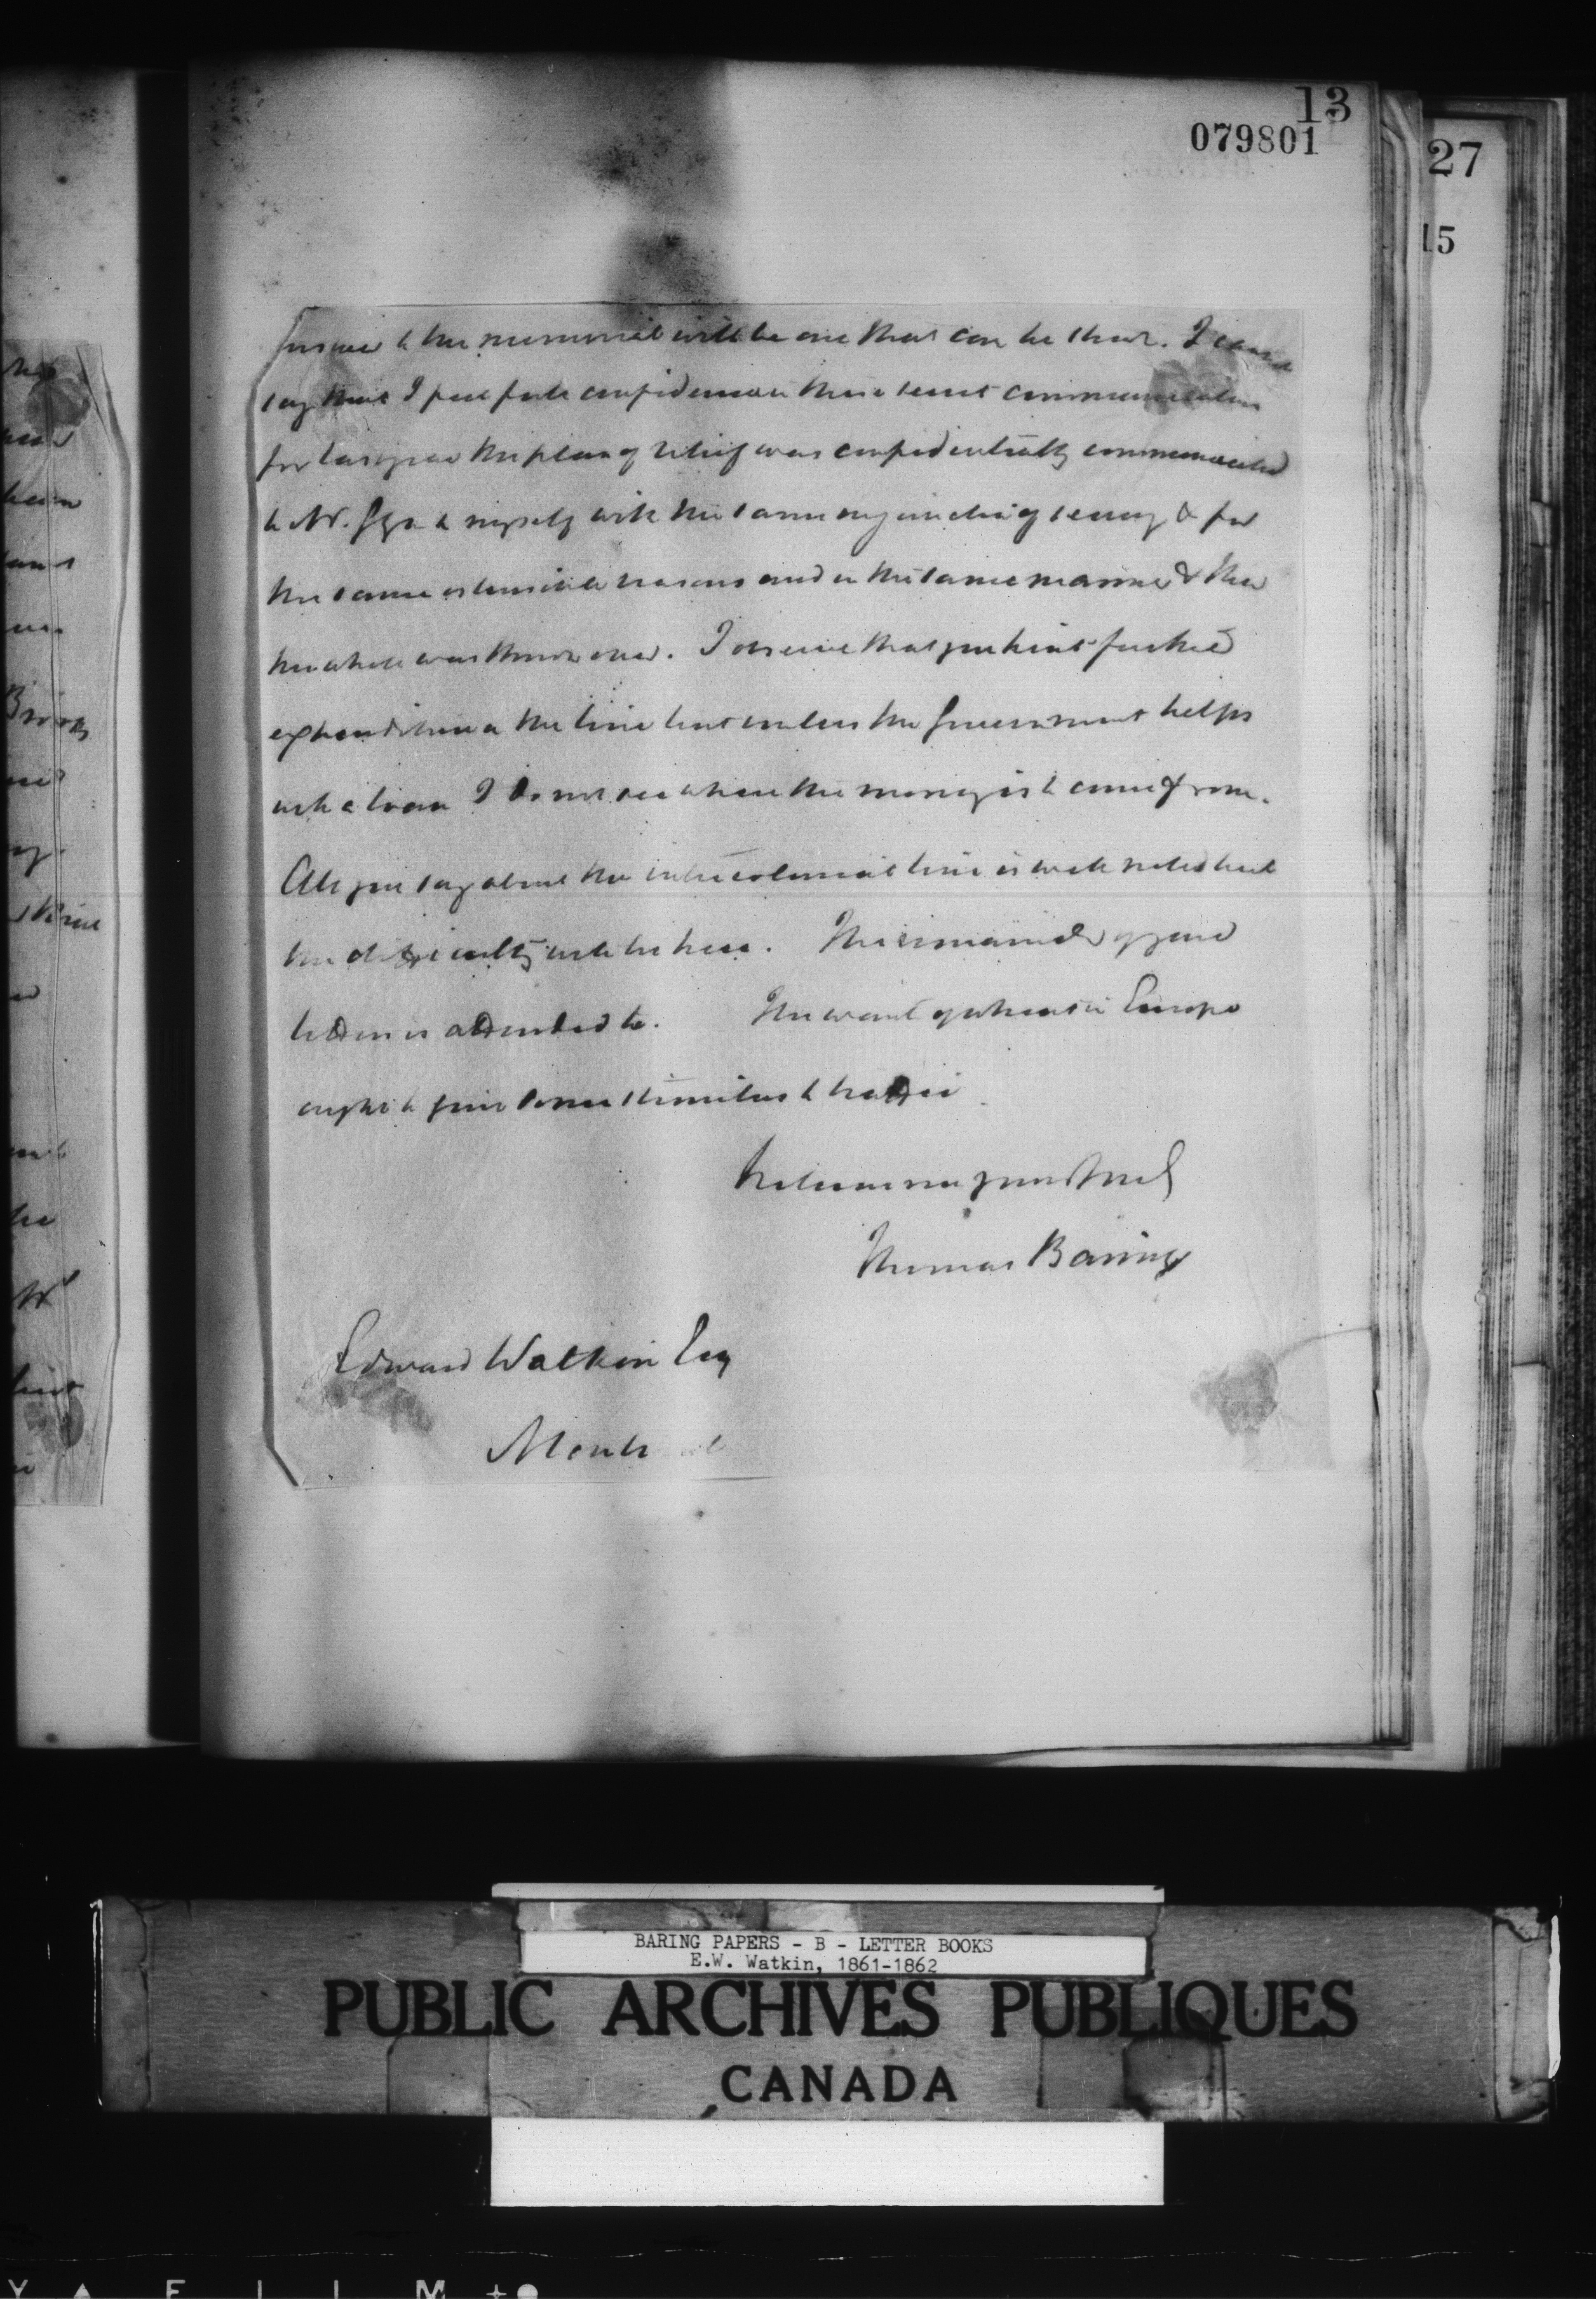 13
079801
27
15
answer to the memorial will be one that can be shewn. I cannot
say that I feel full confidence in these secret communications
for last year the plan of relief was confidentially communicated
to Mr. Glyn & myself with the same injunction of secrecy & for
the same ostensible reasons and in the same manner & then
the whole was thrown over. I observe that you hint further
expenditure on the line but unless the Government helps
with a loan I do not see where the money is to come from.
All you say about the intercolonial line is well noted but
the difficulty will be here. The remainder of your
letter is attended to. The want of wheat in Europe
ought to give some stimulus to traffic
believe me yours truly
Thomas Baring
Edward Watkin Esq
Montreal
BARING PAPERS - B - LETTER BOOKS
E.W. Watkin, 1861-1862
PUBLIC ARCHIVES PUBLIQUES
CANADA